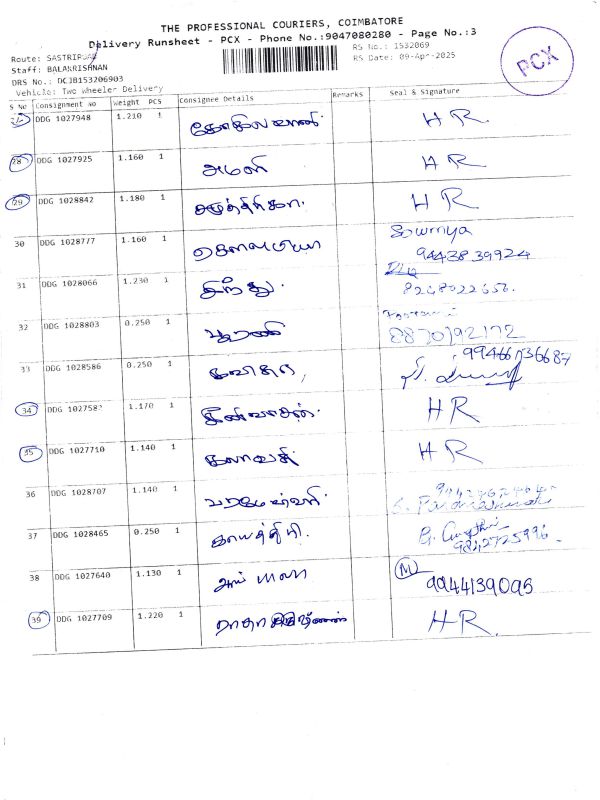 THE PROFESSIONAL COURIERS, COIMBATORE
Delivery Runsheet - PCX - Phone No.:9047080280 - Page No.:3
Route: SASTRIPURAM
RS No.: 1532069
Staff: BALAKRISHNAN
RS Date: 09-Apr-2025
DRS No.: DCJB153206903
Vehicle: Two Wheeler Delivery
PCX
S No Consignment No Weight PCS Consignee Details Remarks Seal & Signature
DDG 1027948 1.210 1 கோகிலவாணி HR
28 DDG 1027925 1.160 1 அமலி HR
29 DDG 1028842 1.180 1 சமுத்திரிகா. HR
30 DDG 1028777 1.160 1 சௌமியா Sowmya
9443839924
31 DDG 1028066 1.230 1 சிந்து. 8248022656.
32 DDG 1028803 0.250 1 பூரணி 8870192172
33 DDG 1028586 0.250 1 கவிதா, 99466736687
34 DDG 1027582 1.170 1 HR
35 DDG 1027710 1.140 1 கலாவதி HR
36 DDG 1028707 1.140 1 பரமேஸ்வரி
37 DDG 1028465 0.250 1 காயத்திரி. 9842725996
38 DDG 1027640 1.130 1 M
9944139095
39 DDG 1027709 1.220 1 ராதா HR.